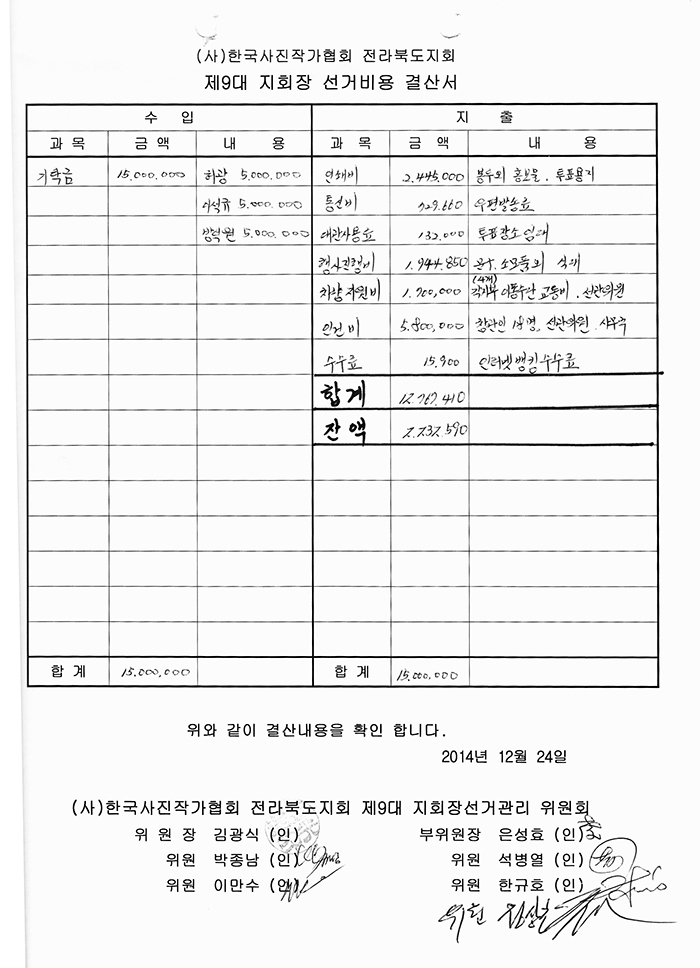 (사)한국사진작가협회 전라북도지회
제9대 지회장 선거비용 결산서
수 입 지 출
과 목 금 액 내 용 과 목 금 액 내 용
기탁금 15.000.000 허광 5.000.000 인쇄비 2.445.000 봉투외 홍보물. 투표용지
이석규 5.000.000 통신비 729.660 우편발송료
5.000.000 대관사용료 132.000 투표장소임대
행사진행비 1.944.850 음료. 소모품외 식대
차량지원비 1.700,000 (4개) 각지부 이동수단 교통비. 선관위원
인건비 5.800,000 참관인 18명. 선관위원. 사무국
수수료 15.900 인터넷뱅킹수수료
합계 12.767.410
잔액 2.232.590
합 계 15.000,000 합 계 15.000.000
위와 같이 결산내용을 확인 합니다.
2014년 12월 24일
(사)한국사진작가협회 전라북도지회 제9대 지회장선거관리 위원회
위 원 장 김광식 (인) 부위원장 은성효 (인)
위원 박종남 (인) 위원 석병열 (인)
위원 이만수 (인) 위원 한규호 (인)
위원